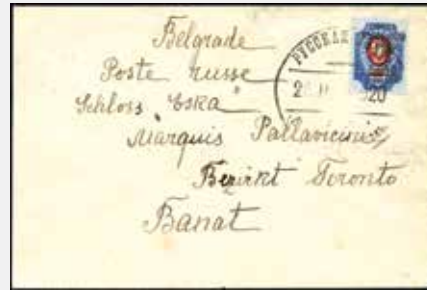 Belgrade
Poste russe
Schloss Eska
Marquis Pallavicini
Bezirkt Toronto
Banat
РУССКАЯ
20